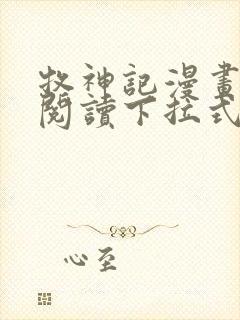 牧神記漫畫
閱讀下拉式
心至